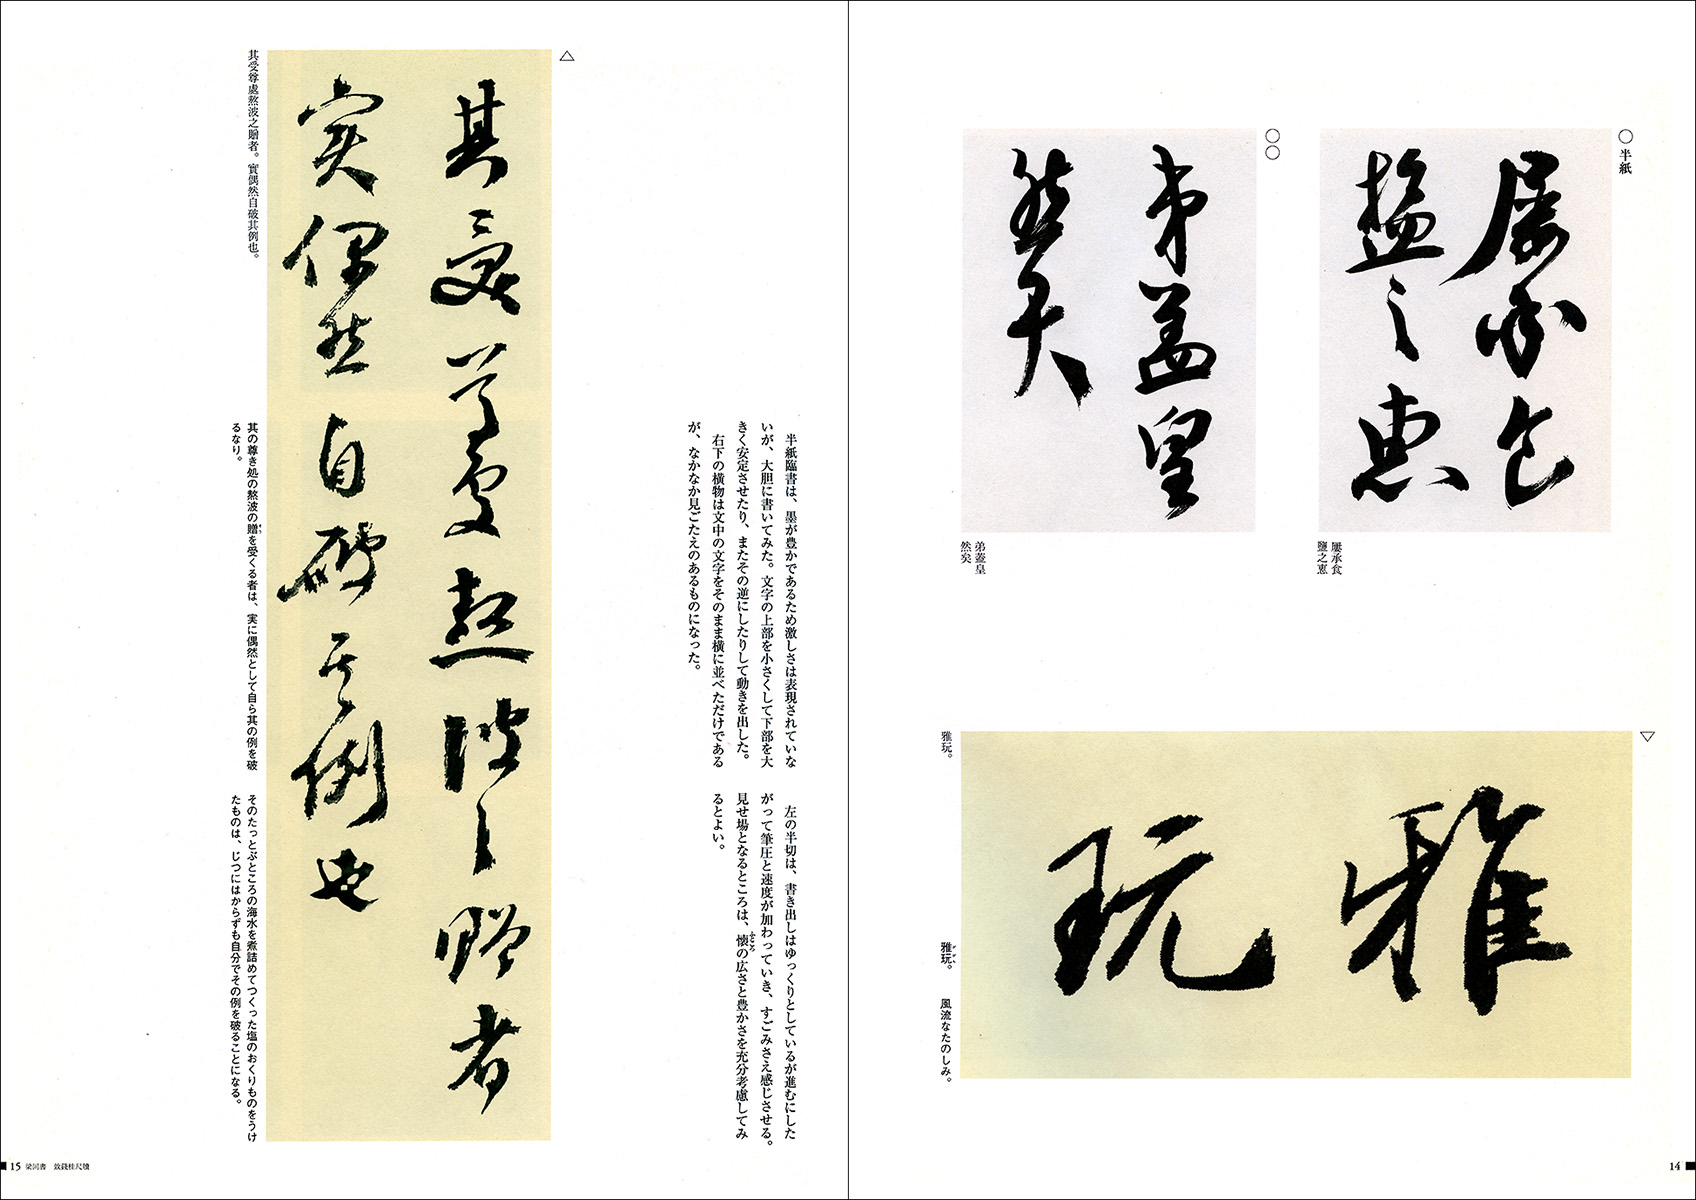 ○半紙
屢承食
鹽之恵
屢承食
鹽之恵
○○
弟蓋皇
然矣
弟蓋皇
然矣
▽
雅玩
雅玩。
雅玩。
ががん
風流なたのしみ。
14
半紙臨書は、墨が豊かであるため激しさは表現されていな
いが、大胆に書いてみた。文字の上部を小さくして下部を大
きく安定させたり、またその逆にしたりして動きを出した。
右下の横物は文中の文字をそのまま横に並べただけである
が、なかなか見ごたえのあるものになった。
左の半切は、書き出しはゆっくりとしているが進むにした
がって筆圧と速度が加わっていき、すごみさえ感じさせる。
見せ場となるところは、懐の広さと豊かさを充分考慮してみ
ふところ
るとよい。
△
其受尊處熬波之贈者
実偶然自破其例也
其受尊處熬波之贈者。實偶然自破其例也。
其の尊き処の熬波の贈を受くる者は、実に偶然として自ら其の例を破
るなり。
そのたっとぶところの海水を煮詰めてつくった塩のおくりものをうけ
たものは、じつにはからずも自分でその例を破ることになる。
15 梁同書 致銭桂尺牘